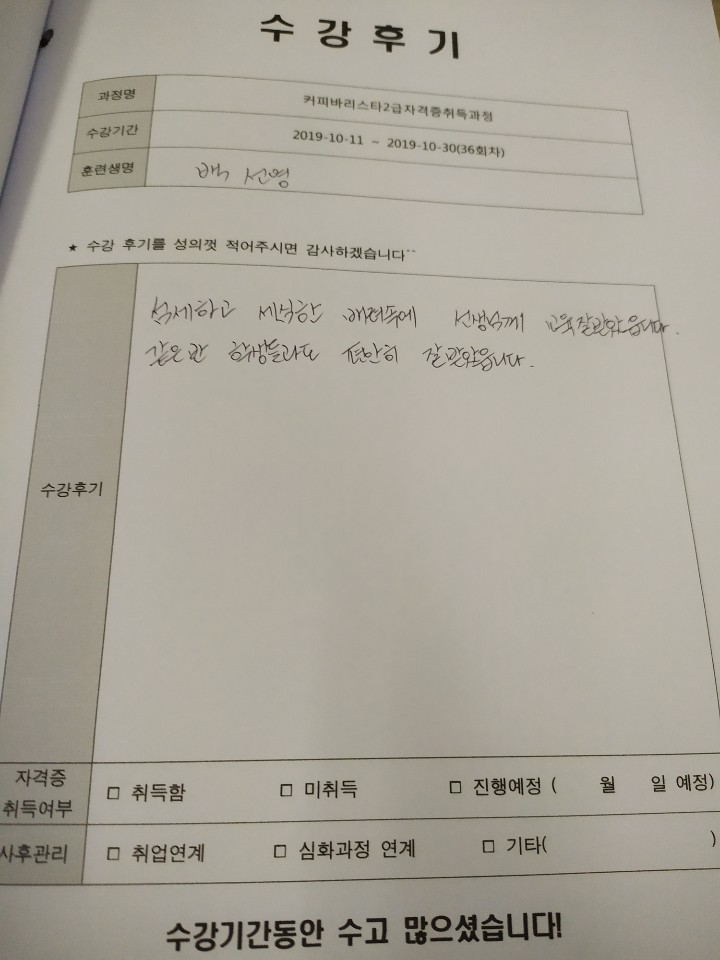 수강후기
과정명 커피바리스타2급자격증취득과정
수강기간 2019-10-11 ~ 2019-10-30(36회차)
훈련생명 백 선영
★ 수강 후기를 성의껏 적어주시면 감사하겠습니다^^
섬세하고 세심한 배려속에 선생님께 교육잘받았습니다.
같은반 학생들과도 편안히 잘받았습니다.
수강후기
자격증
취득여부 □ 취득함 □ 미취득 □ 진행예정 ( 월 일 예정)
사후관리 □ 취업연계 □ 심화과정 연계 □ 기타( )
수강기간동안 수고 많으셨습니다!